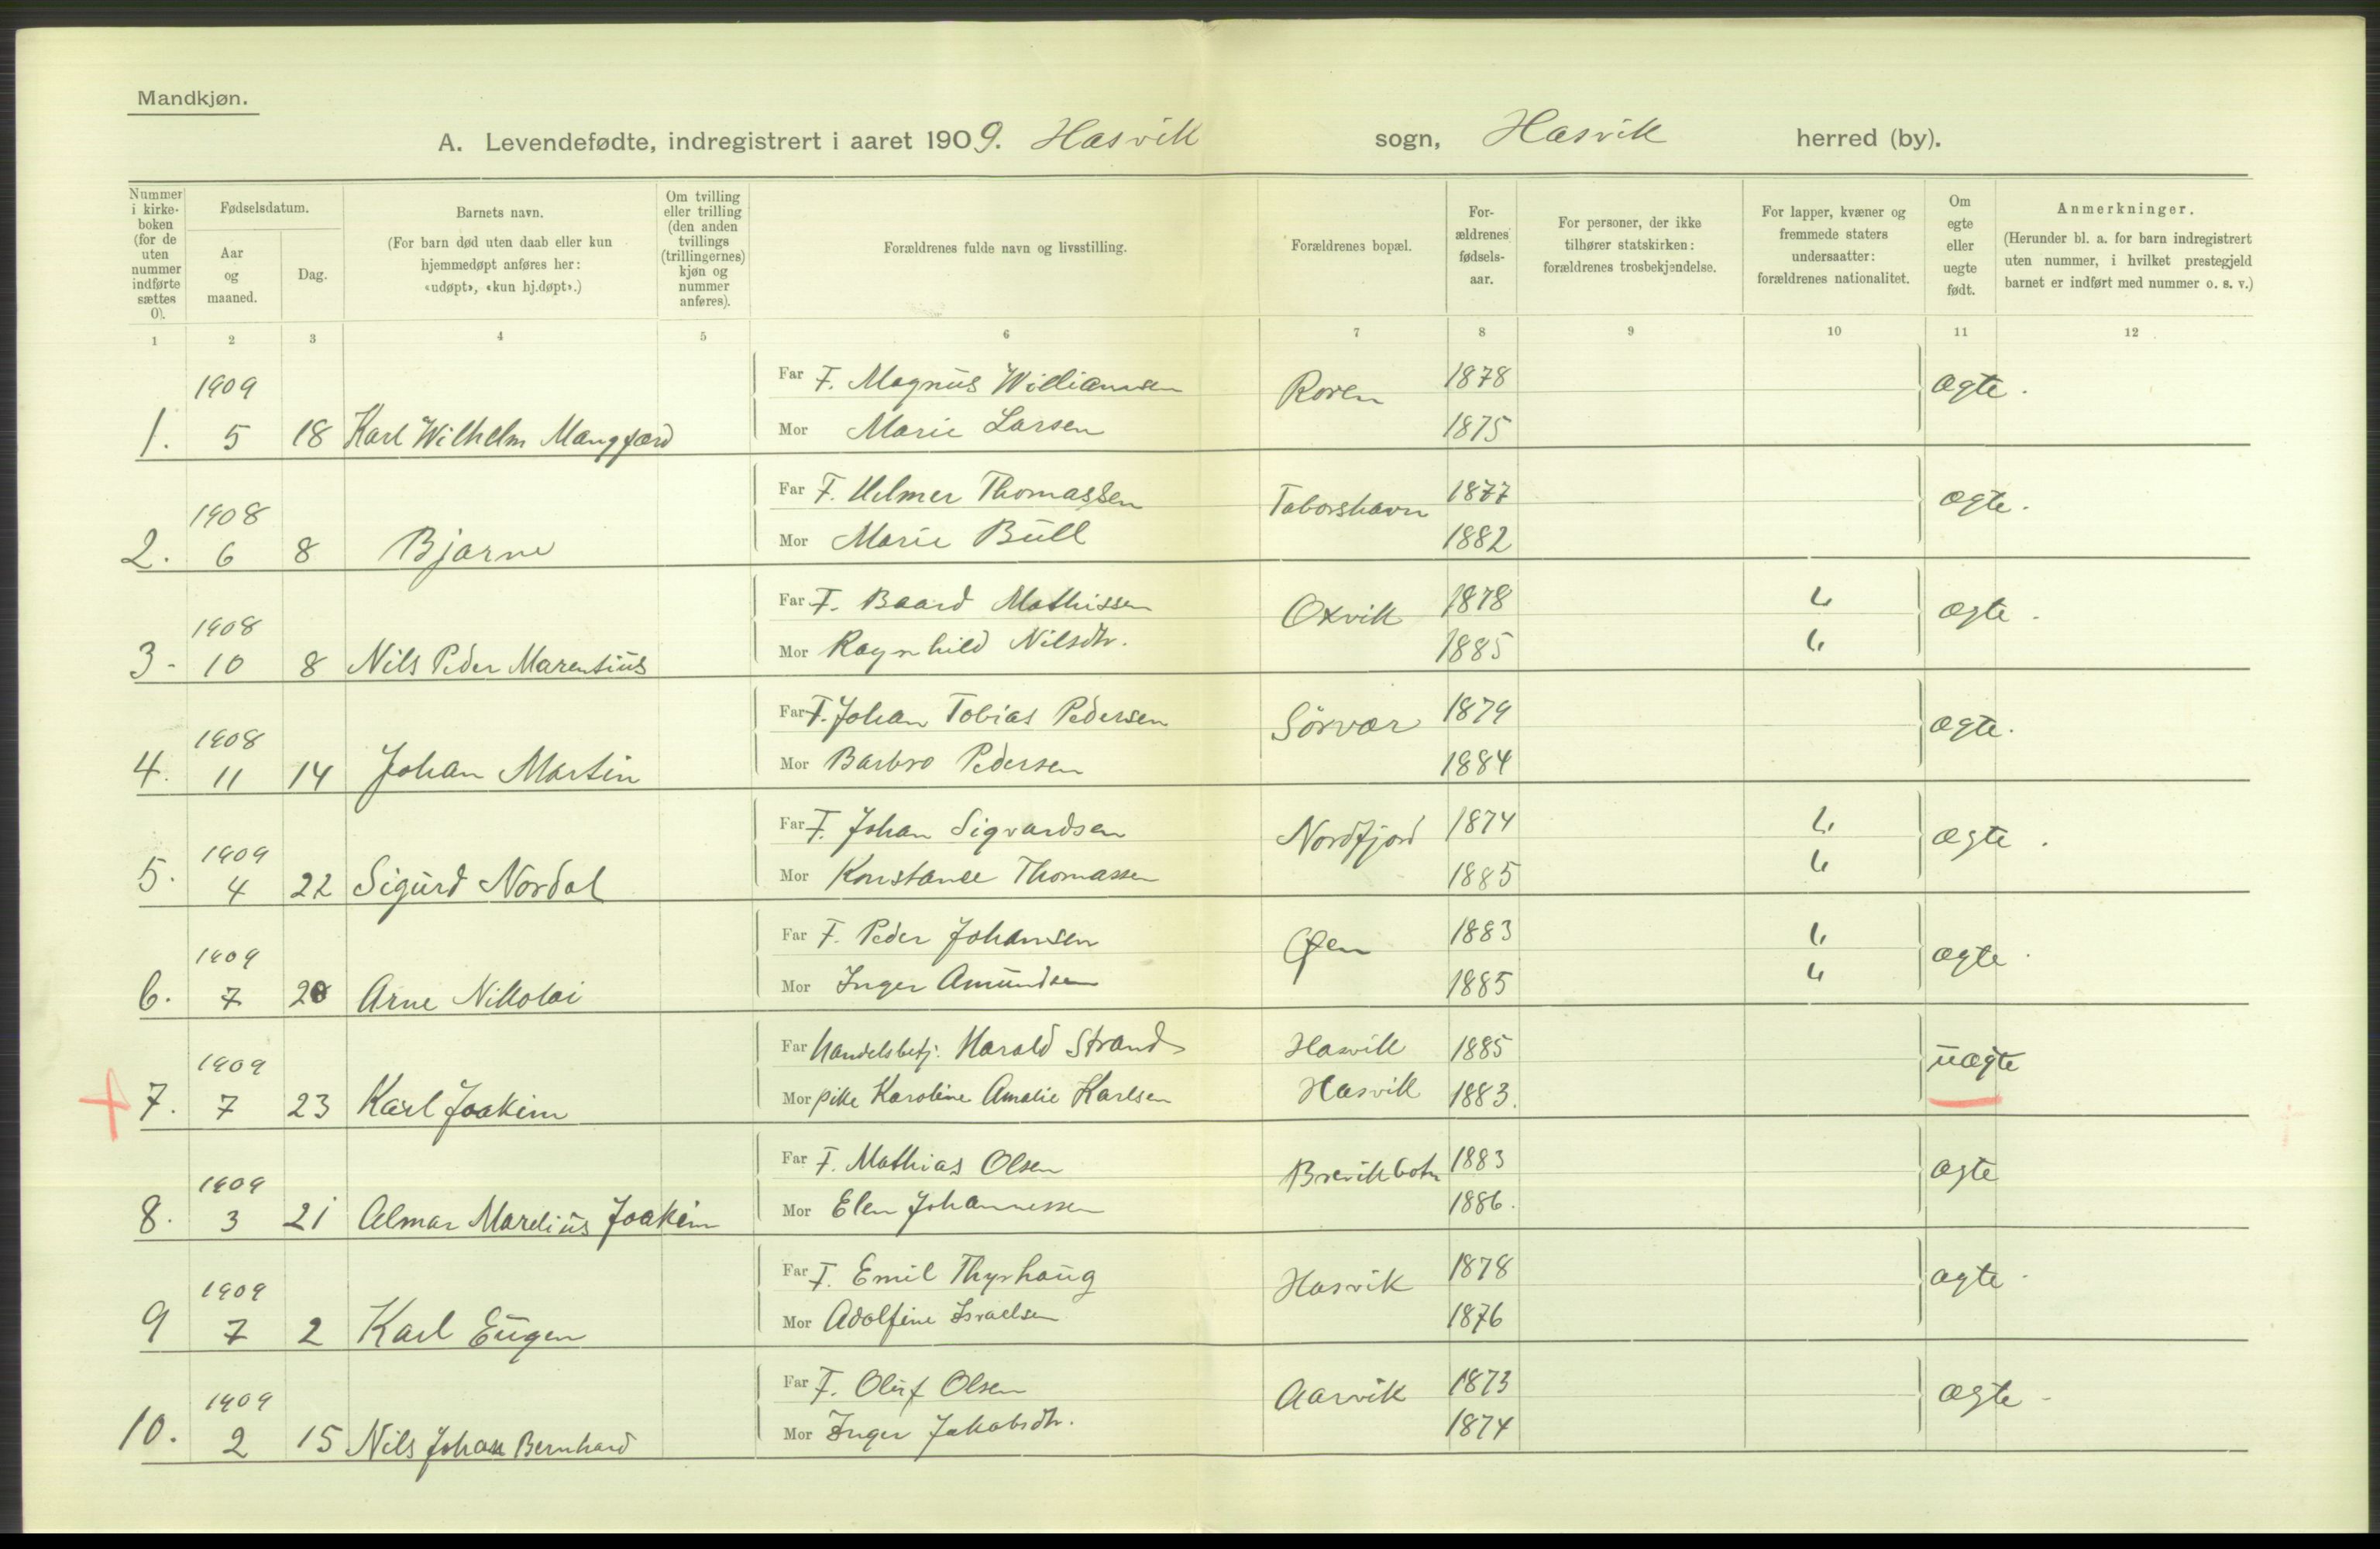 Mandkjøn.
A. Levendefødte, indregistrert i aaret 1909. Hasvik sogn, Hasvik herred (by).
Nummer i kirke-boken (for de uten nummer indførte sættes 0).
Fødselsdatum.
Aar og maaned.
Dag.
Barnets navn.
(For barn død uten daab eller kun hjemmedøpt anføres her: «udøpt», «kun hj.døpt».)
Om tvilling eller trilling (den anden tvillings (trillingernes) kjøn og nummer anføres).
Forældrenes fulde navn og livsstilling.
Forældrenes bopæl.
For-ældrenes fødsels-aar.
For personer, der ikke tilhører statskirken: forældrenes trosbekjendelse.
For lapper, kvæner og fremmede staters undersaatter: forældrenes nationalitet.
Om egte eller uegte født.
Anmerkninger.
(Herunder bl. a. for barn indregistrert uten nummer, i hvilket prestegjeld barnet er indført med nummer o. s. v.)
1 2 3 4 5 6 7 8 9 10 11 12
1909 Far F. Magnus Williamsen Roren 1878 ægte.
1. 5 18 Karl Wilhelm Mangfard Mor Marie Larsen 1875
1908 Far F. Hilmer Thomassen Taborshavn 1877 ægte.
2. 6 8 Bjarne Mor Marie Bull 1882
1908 Far F. Baard Mathissen Oxvik 1878 L. ægte.
3. 10 8 Nils Peder Marentius Mor Ragnhild Nilsdtr. 1885 L.
1908 Far F. Johan Tobias Pedersen Sörvær 1879 ægte.
4. 11 14 Johan Martin Mor Barbro Pedersen 1884
1909 Far F. Johan Sigvardsen Nordfjord 1874 L. ægte.
5. 4 22 Sigurd Nordal Mor Konstance Thomassen 1885 L.
1909 Far F. Peder Johansen Øen 1883 L. ægte.
6. 7 20 Arne Nikolai Mor Inger Amundsen 1885 L.
1909 Far Handelsbetj. Harald Strand Hasvik 1885 uægte
7. 7 23 Karl Joakim Mor pike Karoline Amalie Karlsen Hasvik 1883.
1909 Far F. Mathias Olsen Brevikbotn 1883 ægte
8. 3 21 Almar Marelius Joakim Mor Elen Johannessen 1886.
1909 Far F. Emil Thyrhaug Hasvik 1878 ægte
9 7 2 Karl Eugen Mor Adolfine Israelsen 1876
1909 Far F. Oluf Olsen Aarvik 1873 ægte
10. 2 15 Nils Johan Bernhard Mor Inger Jakobsdtr. 1874